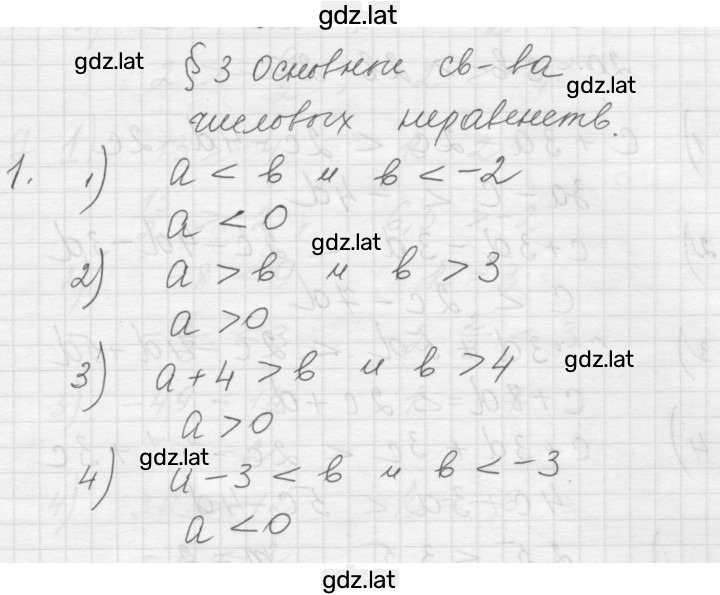 gdz.lat
gdz.lat § 3 Основные св-ва gdz.lat
числовых неравенств.
1. 1) a < b и b < -2
a < 0
gdz.lat
2) a > b и b > 3
a > 0
gdz.lat
3) a + 4 > b и b > 4
a > 0
gdz.lat
4) a - 3 < b и b < -3
a < 0
gdz.lat